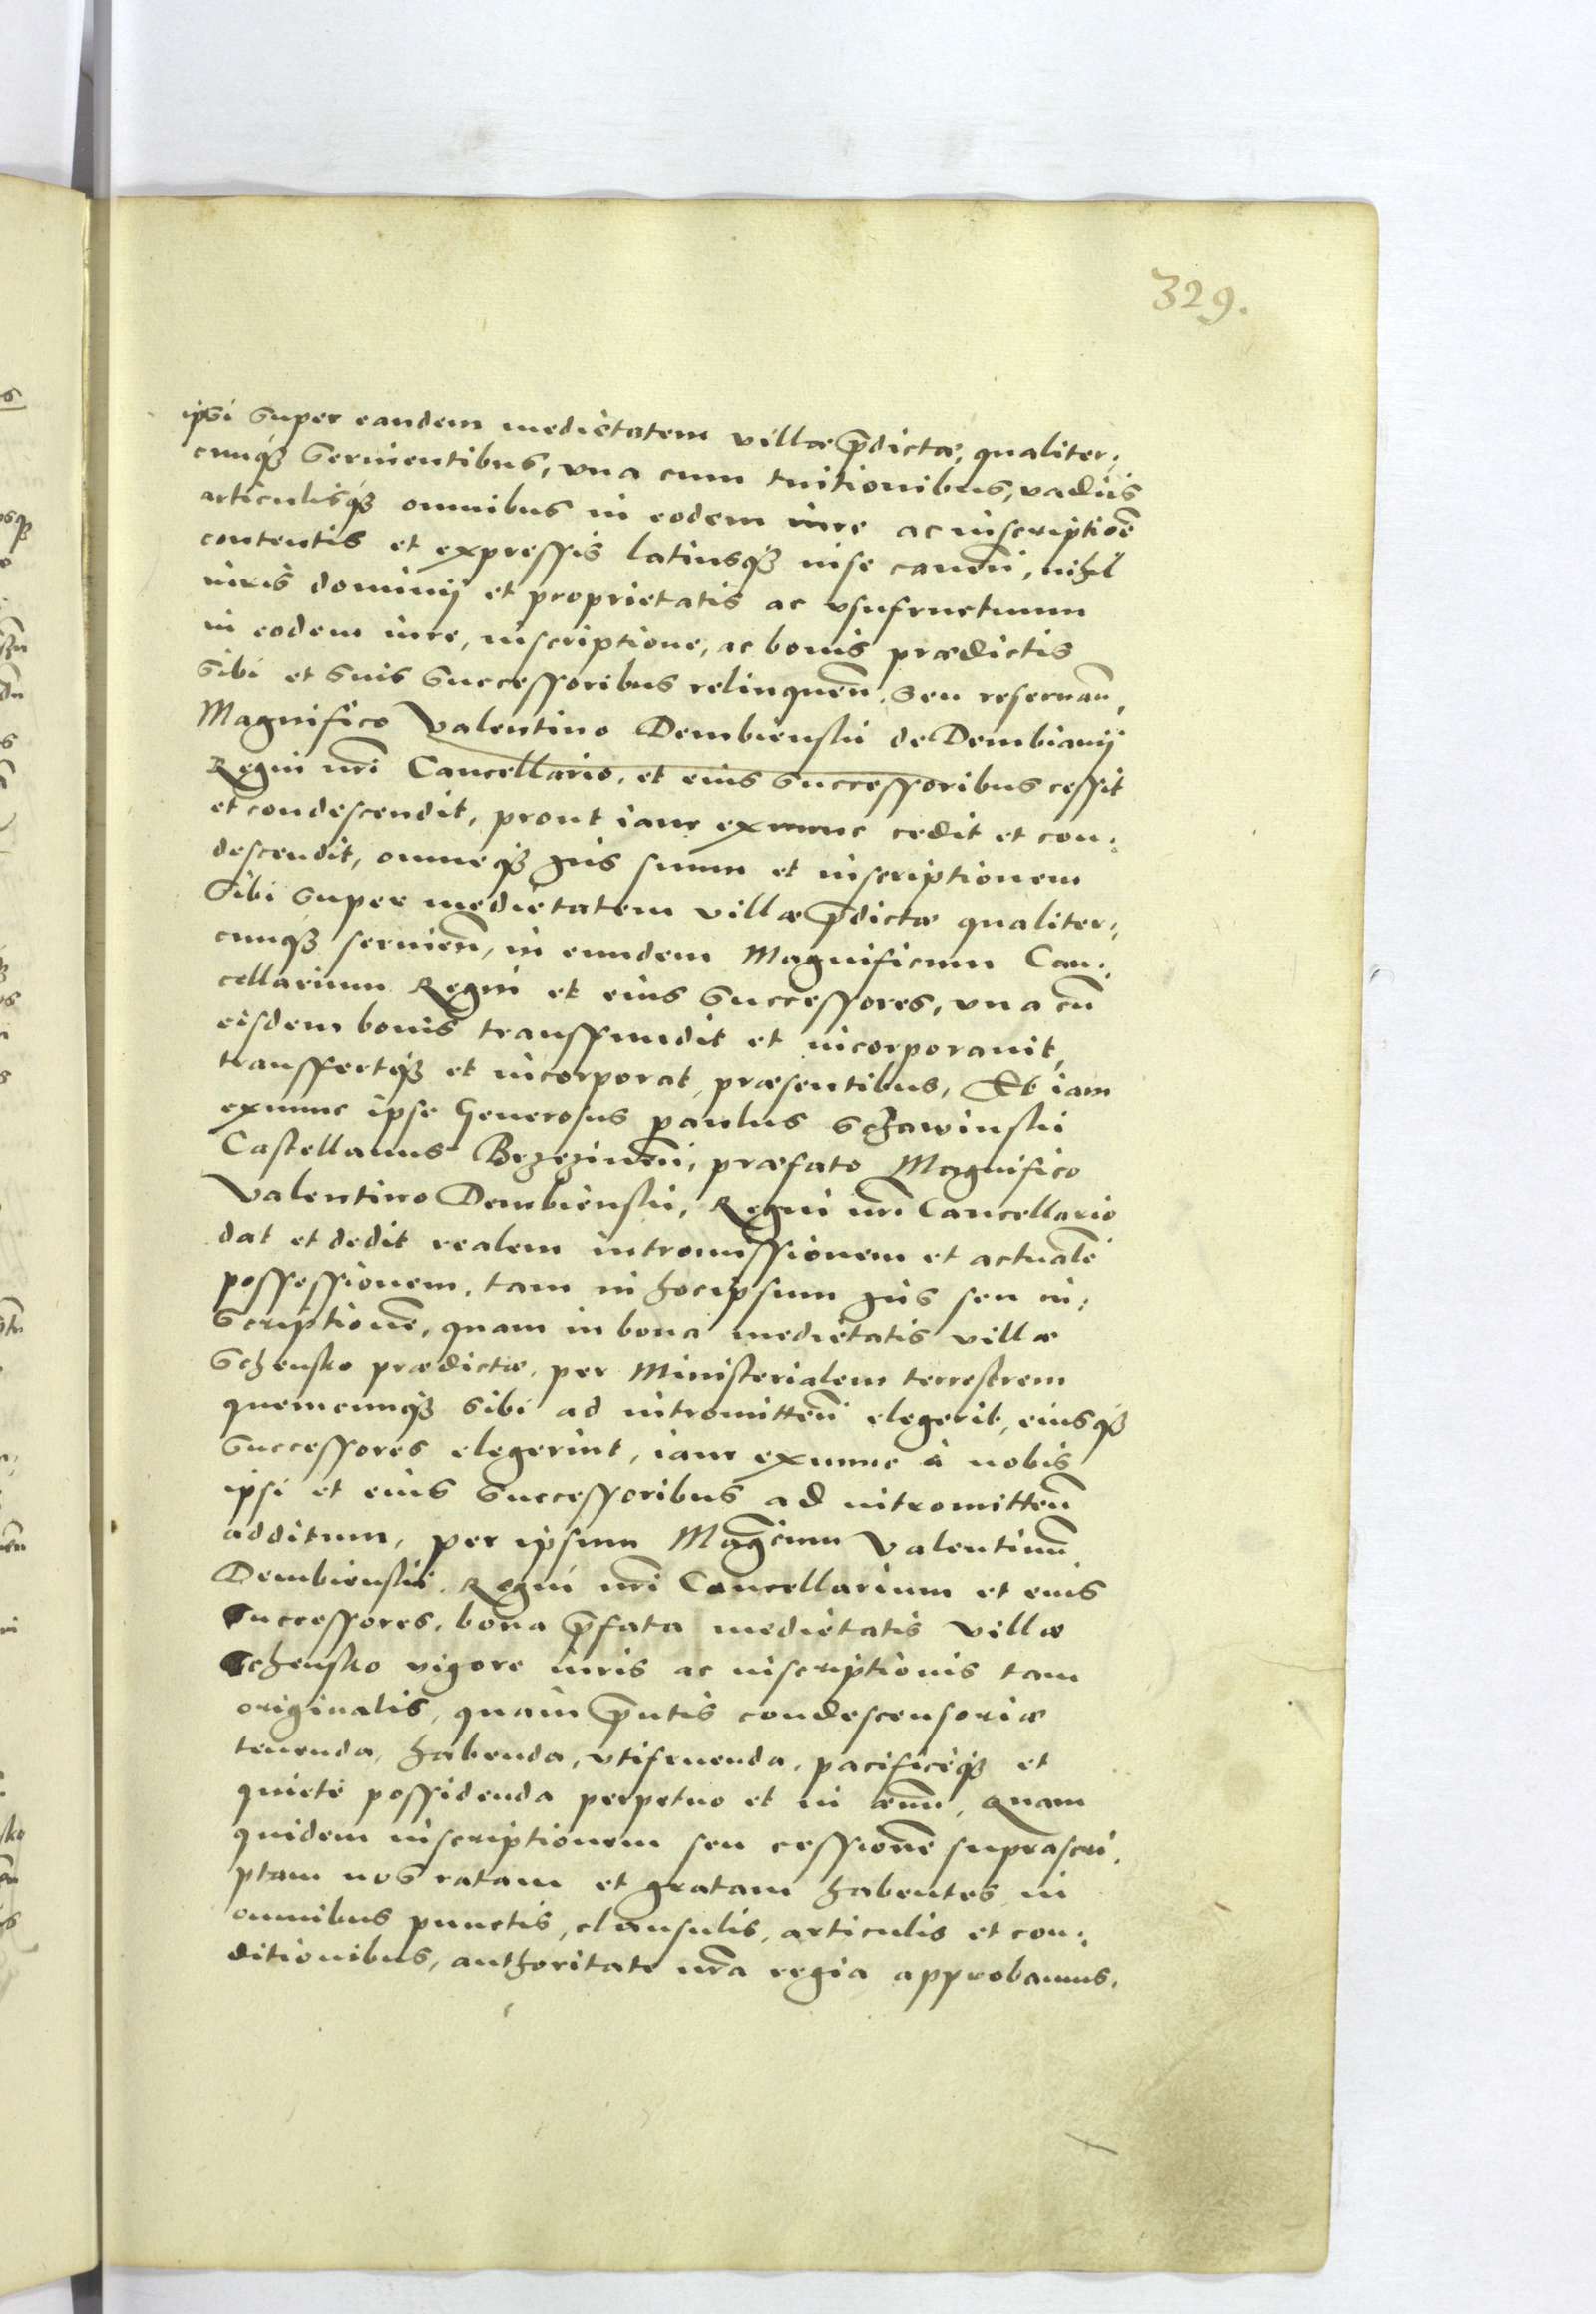 329.
ipsi super eandem medietatem villæ p̄dictæ, qualiter:
cunq₃ seruientibus, vna cum tuitionibus, vadiis
articulisq₃ omnibus in eodem iure ac inscriptiōē
contentis et expressis latiusq₃ in se canen̄, nihil
iuris dominij et proprietatis ac vsufructuum
in eodem iure, inscriptione, ac bonis prædictis
sibi et suis successoribus relinquen̄. seu reseruan̄,
Magnifico Valentino Dembienskii de Dembianij
Regni nr̄i Cancellario, et eius successoribus cessit
et condescendit, prout iam exnunc cedit et con:
descendit, omneq₃ Jus suum et inscriptionem
Sibi super medietatem villæ p̄dictæ qualiter:
cunq₃ seruien̄, in eundem Magnificum Can:
cellarium Regni et eius successores, vna cū
eisdem bonis transffundit et incorporauit,
transffertq₃ et incorporat, præsentibus, Et iam
exnunc ipse Generosus Paulus Schawinskii
Castellanus Brzezinen̄, præfato Magnifico
Valentino Dembienskii, Regni nr̄i Cancellario
dat et dedit realem intromissionem et actualē
possessionem, tam in hocipsum Jus seu in:
scriptionē, quam in bona medietatis villæ
Schensko prædictæ, per Ministerialem terrestrem
quemcunq₃ sibi ad intromitten̄ elegerit, eiusq₃
successores elegerint, iam exnunc à nobis
ipsi et eius successoribus ad intromitten̄
additum, per ipsum Mag̅cum Valentinū
Dembienskii Regni nr̄i Cancellarium et eius
successores, bona p̄fata medietatis villæ
Schensko vigore iuris ac inscriptionis tam
originalis, quam p̄ntis condescensoriæ
tenenda, habenda, vtifruenda, pacificèq₃ et
quietè possidenda perpetuo et in æuū, Quam
quidem inscriptionem seu cessionē suprascri:
ptam nos ratam et gratam habentes in
omnibus punctis, clausulis, articulis et con:
ditionibus, authoritate nr̄a regia approbamus.